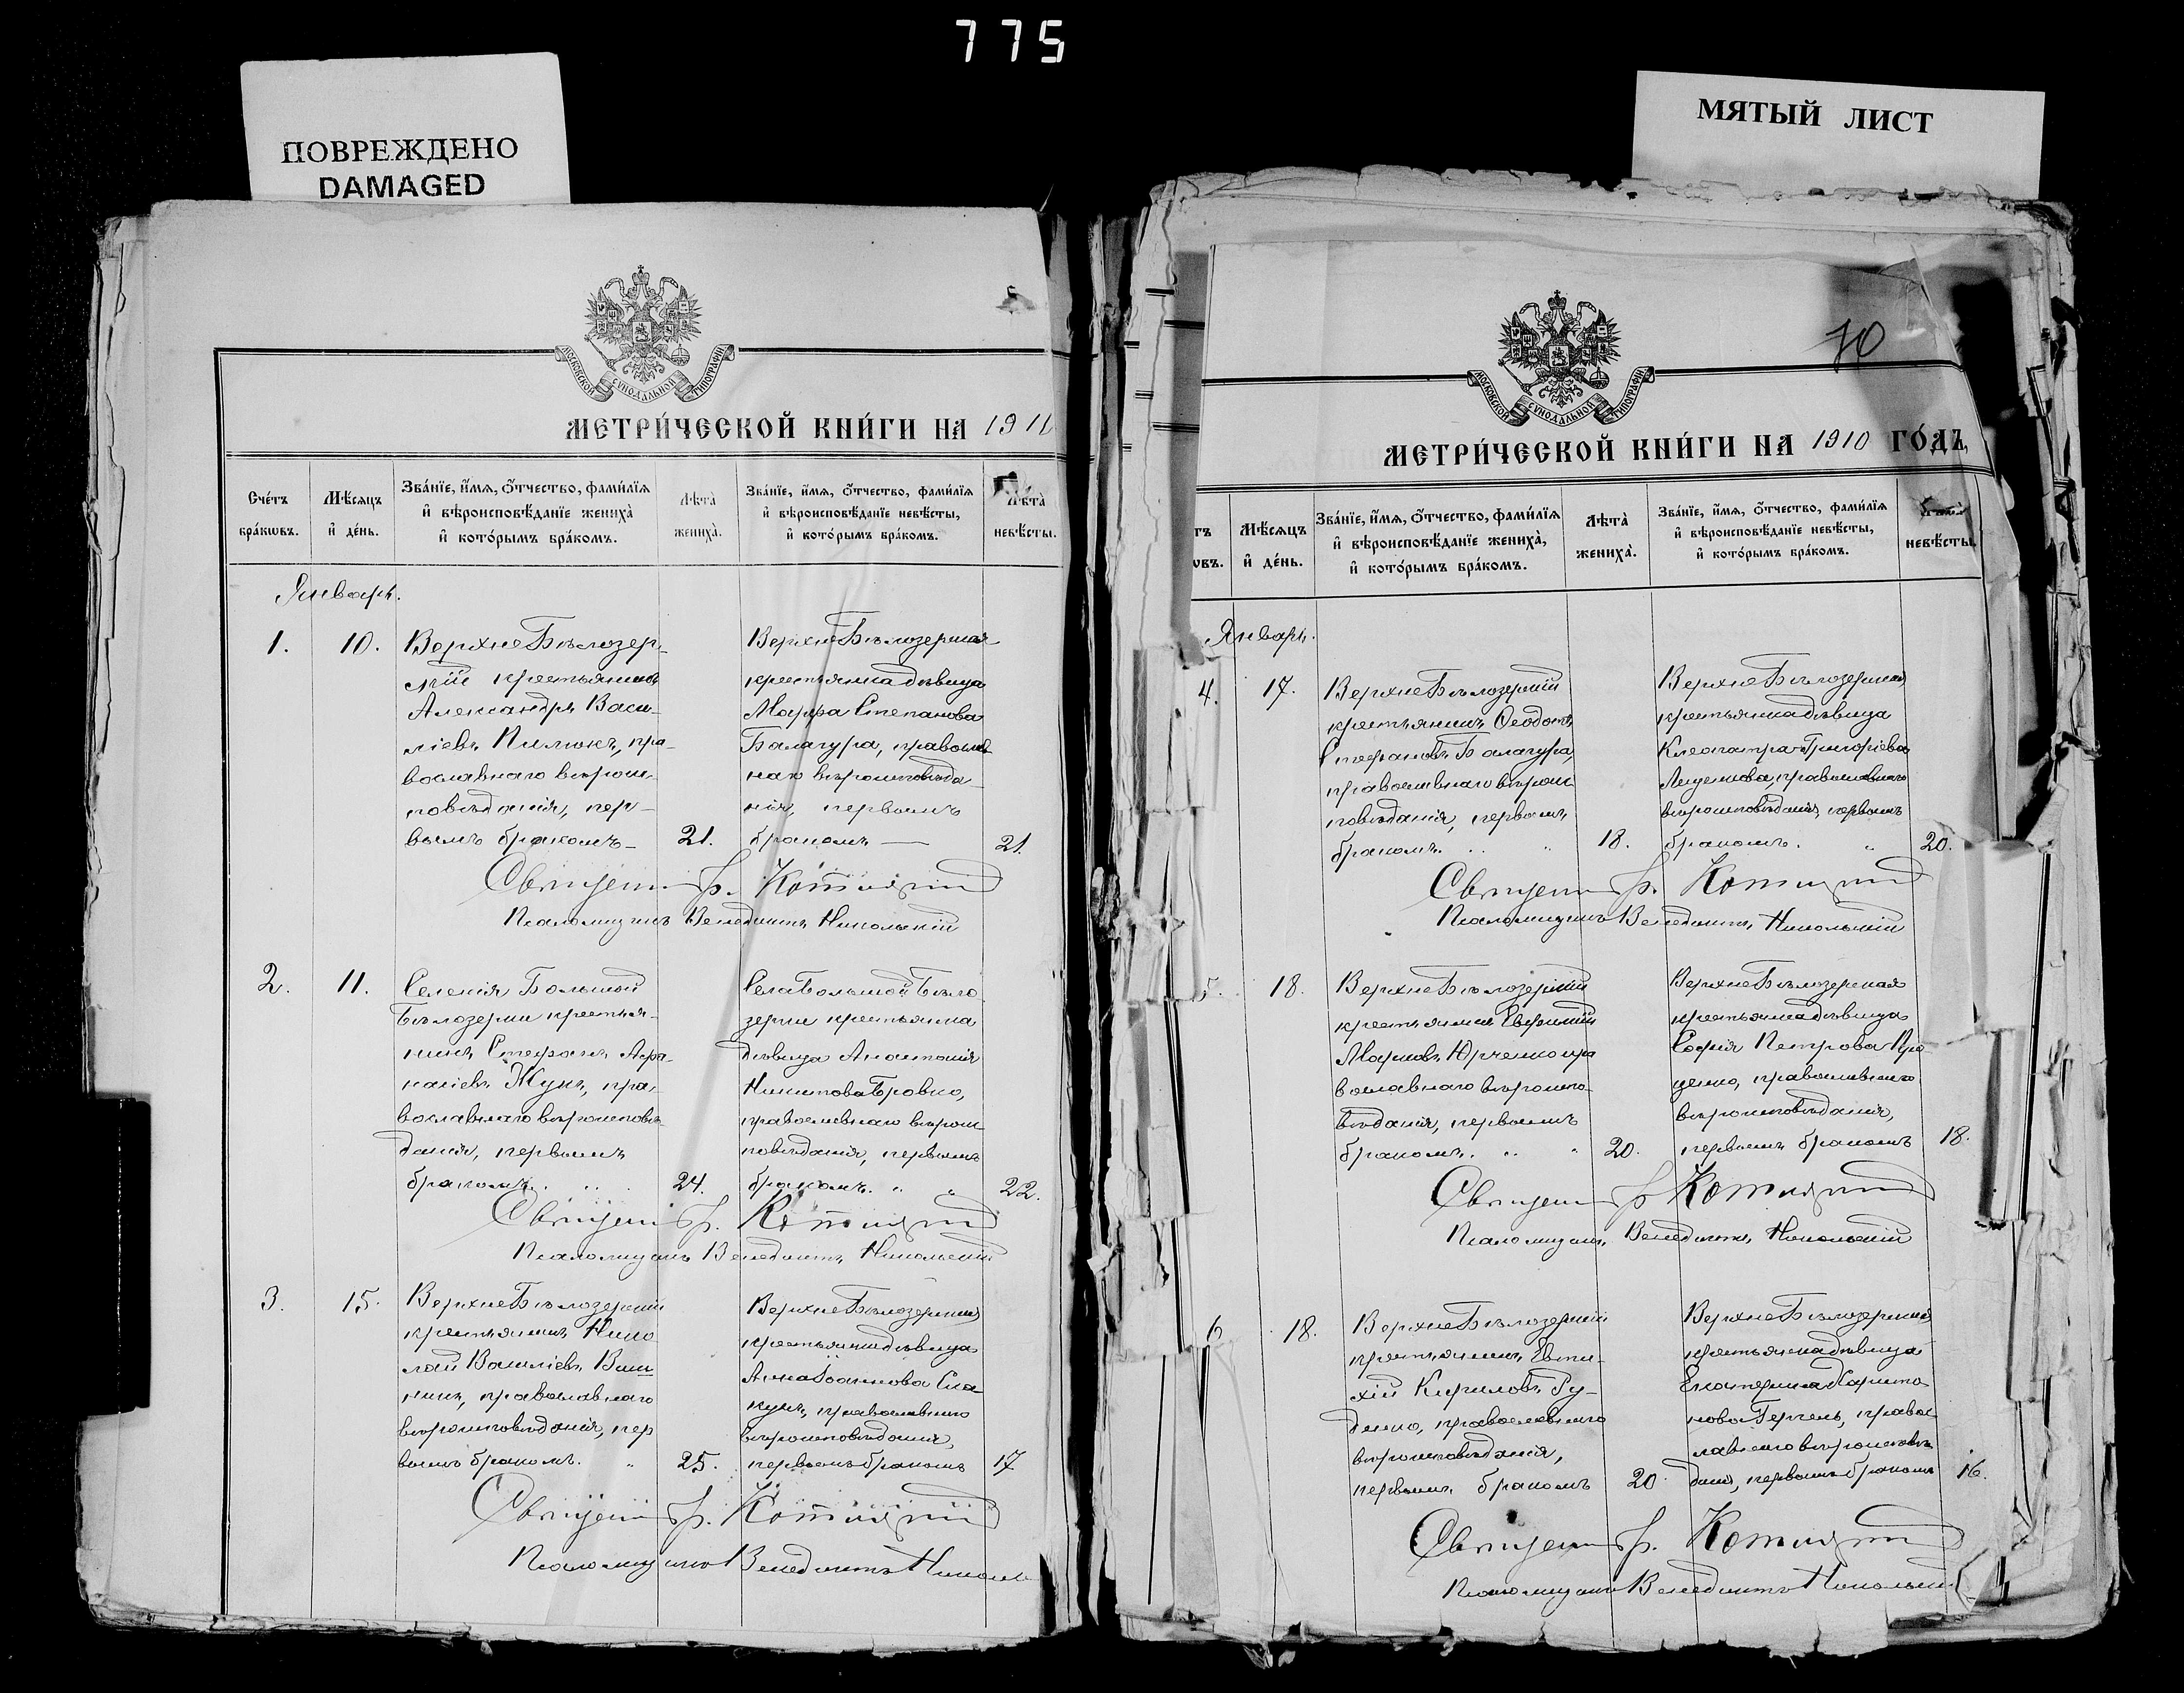 775
ПОВРЕЖДЕНО
DAMAGED
МЯТЫЙ ЛИСТ
МОСКОВСКОЙ СУНОДАЛЬНОЙ ТИПОГРАФІИ
МЕТРИ́ЧЕСКОЙ КНИ́ГИ НА 191
Сче́тъ бра́кѡвъ.
Мѣ́сяцъ и҆ де́нь.
Зва́нїе, и҆́мѧ, ѻ҆́тчество, фами́лїѧ
и҆ вѣроисповѣ́данїе жениха̀
и҆ кото́рымъ бра́комъ.
Лѣта̀ жениха̀.
Зва́нїе, и҆́мѧ, ѻ҆́тчество, фами́лїѧ
и҆ вѣроисповѣ́данїе невѣ́сты,
и҆ кото́рымъ бра́комъ.
Лѣта̀ невѣ́сты.
Январь.
1. 10.
ВерхнеБѣлозер-
скій крестьянинъ
Александръ Васи-
ліевъ Пилюкъ, пра-
вославнаго вѣроис-
повѣданія, пер-
вымъ бракомъ- 21.
ВерхнеБѣлозерская
крестьянка дѣвица
Марфа Степанова
Балагура, православ-
наго вѣроисповѣда-
нія, первымъ
бракомъ — 21.
Священ Гр. Котляр
Псаломщикъ Венедиктъ Никольскій
2. 11.
Селенія Большой
Бѣлозерки крестья-
нинъ Стефанъ Афа-
насіевъ Жукъ, пра-
вославнаго вѣроисповѣ-
данія, первымъ
бракомъ. 24.
Села Большой Бѣло
зерки крестьянка
дѣвица Анастасія
Никитова Бровко,
православнаго вѣроис
повѣданія, первымъ
бракомъ. „ „ 22.
Священ Гр. Котляр
Псаломщикъ Венедиктъ Никольскій
3. 15.
ВерхнеБѣлозерскій
крестьянинъ Нико
лай Василіевъ
православнаго
вѣроисповѣданія, пер
вымъ бракомъ. „ 25.
ВерхнеБѣлозерская
крестьянка дѣвица
Анна Іоаннова Ска-
кунъ, православнаго
вѣроисповѣданія,
первымъ бракомъ 17
Священ Гр. Котляр
Псаломщикъ Венедиктъ Николь
70
МОСКОВСКОЙ СУНОДАЛЬНОЙ ТИПОГРАФІИ
МЕТРИ́ЧЕСКОЙ КНИ́ГИ НА 1910 ГО́ДЪ,
тъ ѡвъ.
Мѣ́сяцъ и҆ де́нь.
Зва́нїе, и҆́мѧ, ѻ҆́тчество, фами́лїѧ
и҆ вѣроисповѣ́данїе жениха̀,
и҆ кото́рымъ бра́комъ.
Лѣта̀ жениха̀.
Зва́нїе, и҆́мѧ, ѻ҆́тчество, фами́лїѧ
и҆ вѣроисповѣ́данїе невѣ́сты,
и҆ кото́рымъ бра́комъ.
невѣ́сты.
Январь.
4. 17.
ВерхнеБѣлозерскій
крестьянинъ Ѳеодотъ
Стефановъ Балагура,
православнаго вѣроис-
повѣданія, первымъ
бракомъ. 18.
ВерхнеБѣлозерская
крестьянка дѣвица
Клеопатра Григоріева
православнаго
вѣроисповѣданія, первымъ
бракомъ. „ 20.
Священ Гр. Котляр
Псаломщикъ Венедиктъ Никольскій
5. 18.
ВерхнеБѣлозерскій
крестьянинъ Евфимій
Марковъ Юрченко пра
вославнаго вѣроиспо-
вѣданія, первымъ
бракомъ. 20.
ВерхнеБѣлозерская
крестьянка дѣвица
Софія Петрова Про
ценко, православнаго
вѣроисповѣданія,
первымъ бракомъ 18.
Священ Гр. Котляр
Псаломщикъ Венедиктъ Никольскій
6 18.
ВерхнеБѣлозерскій
крестьянинъ Евти-
хій Кириловъ Ру-
денко, православнаго
вѣроисповѣданія,
первымъ бракомъ 20
ВерхнеБѣлозерская
крестьянка дѣвица
Екатерина Харито-
нова Гергель, правос-
лавнаго вѣроисповѣ-
данія, первымъ бракомъ 16.
Священ Гр. Котляр
Псаломщикъ Венедиктъ Никольскій